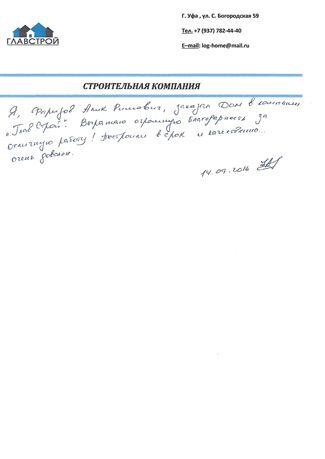 ГЛАВСТРОЙ
Г. Уфа , ул. С. Богородская 59
Тел. +7 (937) 782-44-40
E-mail: log-home@mail.ru
СТРОИТЕЛЬНАЯ КОМПАНИЯ
Я, Фаридов Алик Римович, заказал Дом в компании
"Глав Строй". Выражаю огромную благодарность за
отличную работу! Достроили в срок и качественно...
очень доволен.
14.09.2016